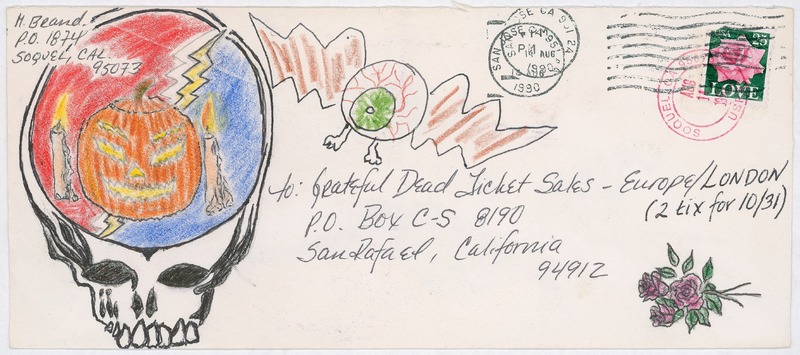 H. Beand
P.O. 1874
Soquel, CAL
95073
SAN JOSE CA 951 24
PM
AUG
1990
1990
USA 25
LOVE
SOQUEL
AUG
to: Grateful Dead Ticket Sales – EUROPE/LONDON
(2 tix for 10/31)
P.O. Box C-S 8190
San Rafael, California
94912